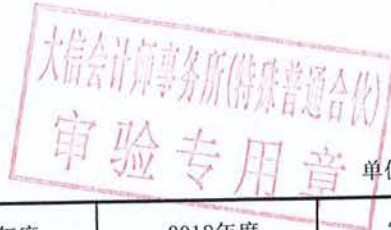 大信会计师事务所(特殊普通合伙)
审验专用章
单位
年度 2012年度